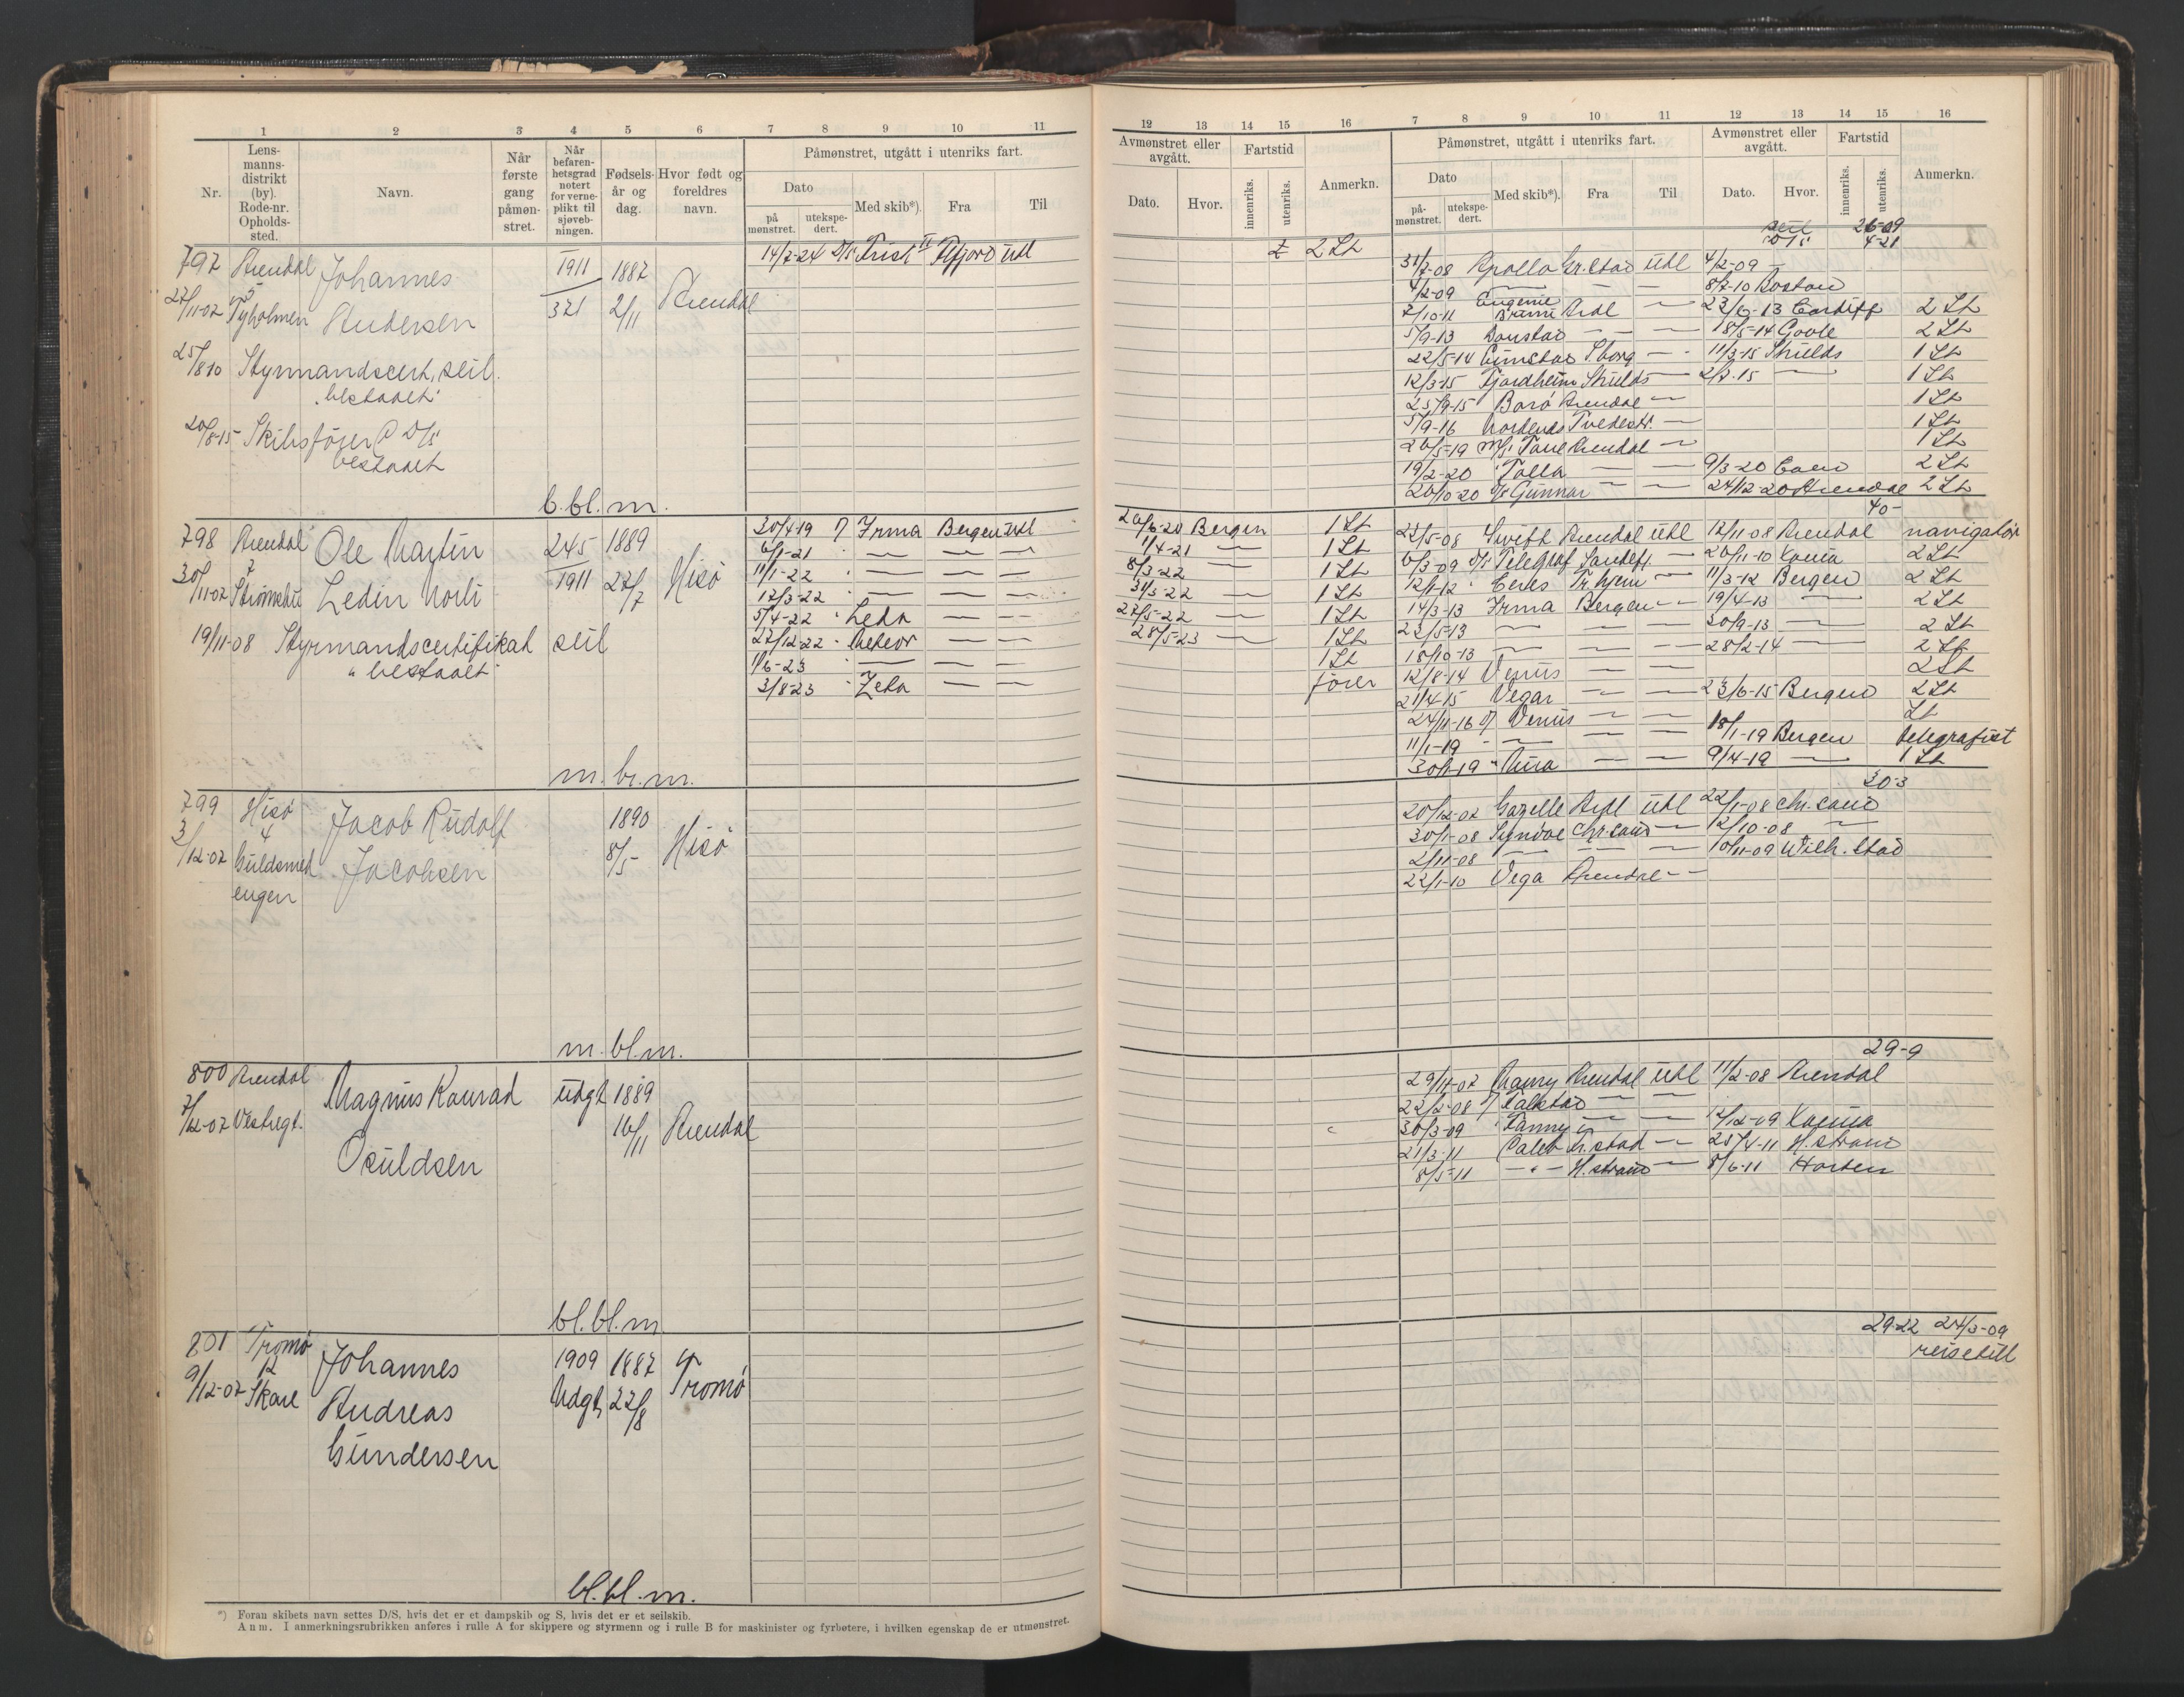 1 2 3 4 5 6 7 8 9 10 11
Nr.
Lens-
manns-
distrikt
(by).
Rode-nr.
Opholds-
sted.
Navn.
Når
første
gang
påmøn-
stret.
Når
befaren-
hetsgrad
notert
for verne-
plikt til
sjøveb-
ningen.
Fødsels-
år og
dag.
Hvor født og
foreldres
navn.
Påmønstret, utgått i utenriks fart.
Dato
på
mønstret.
utekspe-
dert.
Med skib*).
Fra
Til
797 Arendal Johannes 1911 1887
27/11-07 Tyholmen Andersen 321 2/11 Arendal
14/7-24 D/S
25/8 10 Styrmandscert, seil.
"bestaaet"
20/8-15 Skibsfører D/S
bestaaet
b.bl.m.
798 Arendal Ole Martin 245 1889
30/11-07 Ledin Norli 1911 27/7 Hisø
19/11-08 Styrmandscertifikat seil
"bestaaet"
30/4-19 Irma Bergen Utl
6/1-21
11/1-22
17/3-22
5/4-22 Zeta
27/12-22 Meteor
1/6-23
3/8-23 Zeta
m. bl. m.
799 Hisø Jacob Rudolf 1890
3/12-07 4 Jacobsen 8/5 Hisø
Guldsmed
engen
m. bl. m.
800 Arendal Magnus Konrad udgt 1889
7/12-07 Vestregt. Osuldsen 16/11 Arendal
bl. bl. m
801 Tromø Johannes 1909 1887
9/12-07 12 Skare Andreas Udgt, 22/8 Tromø
Gundersen
bl. bl. m.
*) Foran skibets navn settes D/S, hvis det er et dampskib og S, hvis det er et seilskib.
Anm. I anmerkningsrubrikken anføres i rulle A for skippere og styrmenn og i rulle B for maskinister og fyrbøtere, i hvilken egenskap de er utmønstret.
12 13 14 15 16 7 8 9 10 11 12 13 14 15 16
Avmønstret eller
avgått.
Dato. Hvor.
Fartstid
innenriks. utenriks.
Anmerkn.
Påmønstret, utgått i utenriks fart.
Dato
på-
mønstret.
utekspe-
dert.
Med skib*).
Fra
Til
Avmønstret eller
avgått.
Dato. Hvor.
Fartstid
innenriks. utenriks.
Anmerkn.
seil 26-09
D/S 4-21
2 St
31/7-08 Apollo Gr.stad Utl 4/2-09
4/2-09 8/7-10 Boston
7/10-11 Eugenie Ardl 23/6-13 Cardiff 2 St
5/9-13 18/5-14 Goole 2 St
22/5-14 Grimstad 11/3-15 Shields 1 St
12/3-15 Fjordheim Shields 2/7-15 1 St
25/9-15 Borø Arendal 1 St
5/9-16 Tvedestr. 1 St
26/5-19 M/S Arendal 1 St
19/2-20 9/3-20 2 St
20/10-20 D/S Gunnar 24/12-20 Arendal 2 St
40-
26/6-20 Bergen 1 St
1/4-21 1 St
8/3-22 1 St
31/3-22 1 St
27/5-22 1 St
28/5-23 1 St
1 St
fører
22/5-08 Swift Arendal Utl 12/11-08 Arendal navigatør
6/3-09 D/S Telegraf Sandefj. 20/11-10 2 St
12/1-12 Ceres Tr.hjem 11/3-12 Bergen 2 St
14/3-13 Irma Bergen 19/4-13 2 St
23/5-13 30/9-13 2 St
18/10-13 28/2-14 2 St
12/8-14 Venus 2 St
21/4-15 Vega 23/6-15 Bergen 2 St
24/11-16 Venus St
11/1-19 18/1-19 Bergen telegrafist
30/1-19 Mira 9/4-19 1 St
30-3
20/12-07 Gazelle Ardl Utl 22/1-08 Chr.sand
30/1-08 Chr.sand 12/10-08
2/11-08 10/11-09 Wilh.stad
22/1-10 Vega Arendal
29-9
29/11-07 Arendal Utl 11/2-08 Arendal
22/2-08 Falkstad
30/3-09 Fanny
21/3-11 Caleb Fr.stad 25/4-11 H.strand
8/5-11 H.strand 8/6-11 Horten
29-22 24/3-09
reisetill